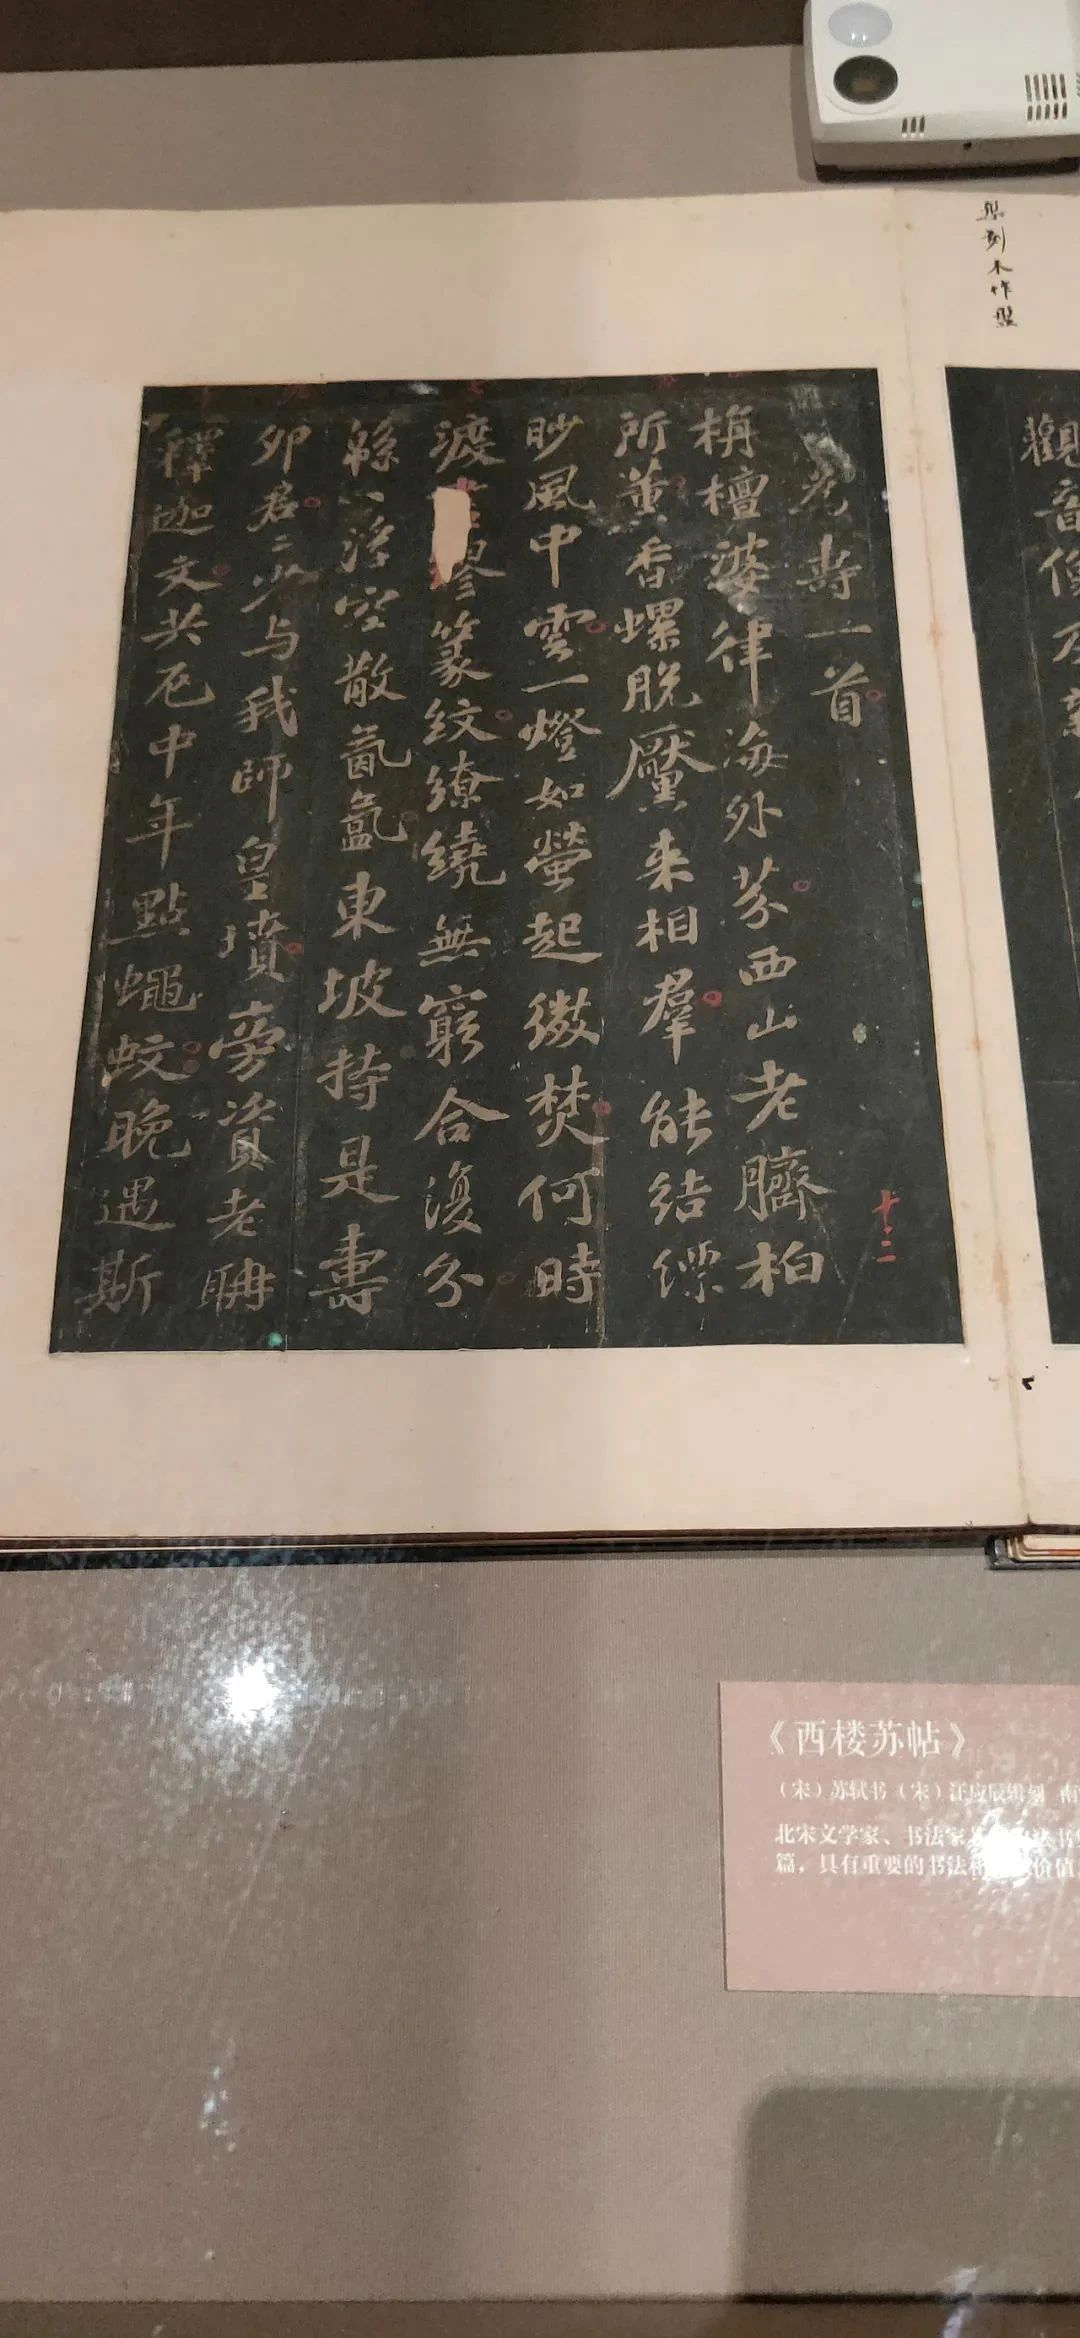 觀音像
集刻木作盤
為壽一首
栴檀婆律海外芬西山老臍柏
所薰香螺脫黶来相羣能結縹
眇風中雲一燈如螢起微焚何時
渡 謬篆紋繚繞無窮合復分
緜〻浮空散氤氳東坡持是壽
卯君〻少与我師皇墳旁資老聃
釋迦文共厄中年點蠅蚊晚遇斯
十二
《西楼苏帖》
（宋）苏轼书（宋）汪应辰辑刻 南
北宋文学家、书法家 法书
篇，具有重要的书法和 价值